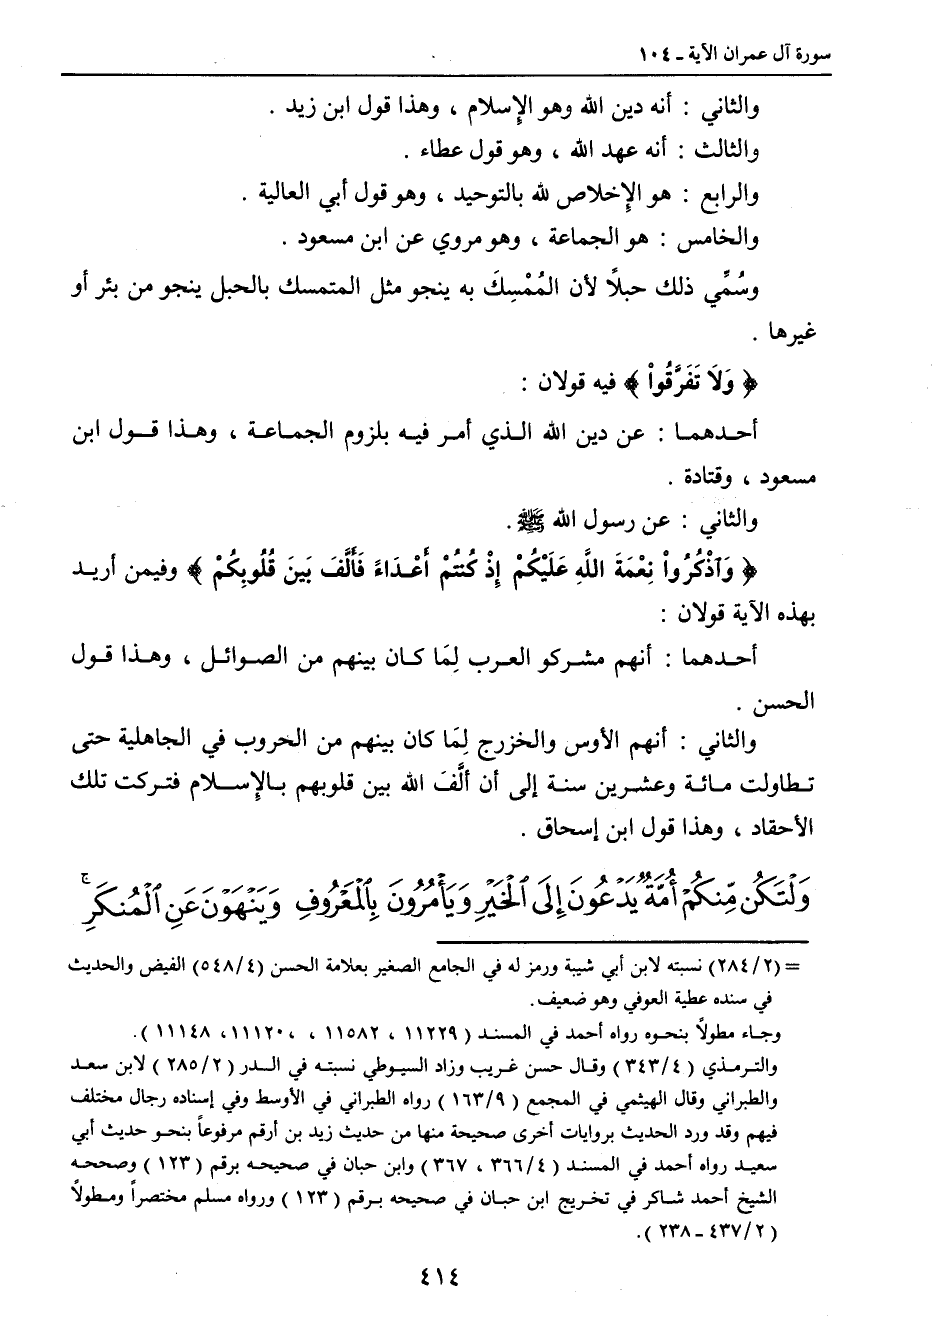 سورة آل عمران الآية ـ ١٠٤
والثاني : أنه دين الله وهو الإسلام ، وهذا قول ابن زيد .
والثالث : أنه عهد الله ، وهو قول عطاء .
والرابع : هو الإخلاص لله بالتوحيد ، وهو قول أبي العالية .
والخامس : هو الجماعة ، وهو مروي عن ابن مسعود .
وسُمِّي ذلك حبلاً لأن المُمْسِكَ به ينجو مثل المتمسك بالحبل ينجو من بئر أو
غيرها .
﴿ وَلَا تَفَرَّقُواْ ﴾ فيه قولان :
أحدهما : عن دين الله الذي أمر فيه بلزوم الجماعة ، وهذا قول ابن
مسعود ، وقتادة .
والثاني : عن رسول الله ﷺ .
﴿ وَٱذْكُرُواْ نِعْمَةَ اللَّهِ عَلَيْكُمْ إِذْ كُنتُمْ أَعْدَاءً فَأَلَّفَ بَينَ قُلُوبِكُمْ ﴾ وفيمن أريد
بهذه الآية قولان :
أحدهما : أنهم مشركو العرب لِمَا كان بينهم من الصوائل ، وهذا قول
الحسن .
والثاني : أنهم الأوس والخزرج لِمَا كان بينهم من الحروب في الجاهلية حتى
تطاولت مائة وعشرين سنة إلى أن ألَّفَ الله بين قلوبهم بالإسلام فتركت تلك
الأحقاد ، وهذا قول ابن إسحاق .
وَلْتَكُن مِّنكُمْ أُمَّةٌ يَدْعُونَ إِلَى ٱلْخَيْرِ وَيَأْمُرُونَ بِٱلْمَعْرُوفِ وَيَنْهَوْنَ عَنِ ٱلْمُنكَرِۚ
= (٢٨٤/٢) نسبته لابن أبي شيبة ورمز له في الجامع الصغير بعلامة الحسن (٥٤٨/٤) الفيض والحديث
في سنده عطية العوفي وهو ضعيف.
وجاء مطولاً بنحوه رواه أحمد في المسند ( ١١٢٢٩ ، ١١٥٨٢ ، ، ١١١٢٠، ١١١٤٨ ).
والترمذي ( ٣٤٣/٤ ) وقال حسن غريب وزاد السيوطي نسبته في الدر ( ٢٨٥/٢ ) لابن سعد
والطبراني وقال الهيثمي في المجمع ( ١٦٣/٩ ) رواه الطبراني في الأوسط وفي إسناده رجال مختلف
فيهم وقد ورد الحديث بروايات أخرى صحيحة منها من حديث زيد بن أرقم مرفوعاً بنحو حديث أبي
سعيد رواه أحمد في المسند ( ٣٦٦/٤ ، ٣٦٧ ) وابن حبان في صحيحه برقم ( ١٢٣ ) وصححه
الشيخ أحمد شاكر في تخريج ابن حبان في صحيحه برقم ( ١٢٣ ) ورواه مسلم مختصراً ومطولاً
( ٤٣٧/٢ ـ ٢٣٨ ).
٤١٤